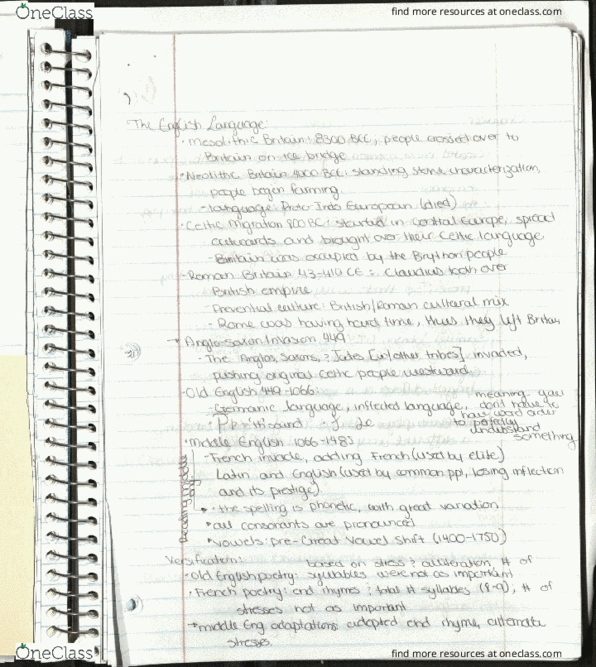 OneClass
find more resources at oneclass.com
The English Language:
· Mesolithic Britain: 8300 BCE, people crossed over to
Britain on ice bridge
· Neolithic Britain 4000 BCE: standing stone characterization,
people began farming.
- language Proto Indo European (died)
· Celtic Migration 800 BC: started in central Europe, spread
outwards and brought over their Celtic language
- Britain was occupied by the Brython people
- Roman Britain 43-410 CE: Claudius took over
British empire
- culture: British/Roman cultural mix
- Rome was having hard time, thus they left Britain
Anglo-Saxon Invasion 449
- The Anglos, Saxons, & Jutes [w/other tribes], invaded,
pushing original Celtic people westward
- Old English 449-1066
- Germanic language, inflected language,
meaning you
don't have to
have word order
to
understand
something
sound
· Middle English 1066-1485
- French invade, adding French (used by elite)
Latin and English (used by common ppl, losing inflection
and its prestige)
Reading Middle
· the spelling is phonetic, with great variation
· all consonants are pronounced
· vowels: pre-Great Vowel Shift (1400-1750)
Versification:
based on stress & alliteration, # of
· Old English poetry: syllables were not as important
· French poetry: end rhymes & total # syllables (8-9), # of
stresses not as important
middle Eng adaptations: adopted end rhyme, alternate
stresses.
OneClass
find more resources at oneclass.com